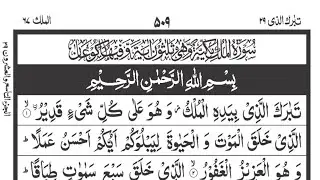 تبارك الذی ٢٩ ٥٠٩ الملك ٦٧
سُوْرَةُ الْمُلْكِ مَكِّيَّةٌ وَّهِيَ ثَلٰثُوْنَ اٰيَةً وَّفِيْهَا رُكُوْعَانِ
بِسْمِ اللّٰهِ الرَّحْمٰنِ الرَّحِيْمِ
تَبٰرَكَ الَّذِيْ بِيَدِهِ الْمُلْكُ ۫ وَ هُوَ عَلٰى كُلِّ شَيْءٍ قَدِيْرُ ۙ﴿١﴾
الَّذِيْ خَلَقَ الْمَوْتَ وَ الْحَيٰوةَ لِيَبْلُوَكُمْ اَيُّكُمْ اَحْسَنُ عَمَلًا ؕ
وَ هُوَ الْعَزِيْزُ الْغَفُوْرُ ۙ﴿٢﴾ الَّذِيْ خَلَقَ سَبْعَ سَمٰوٰتٍ طِبَاقًا ؕ